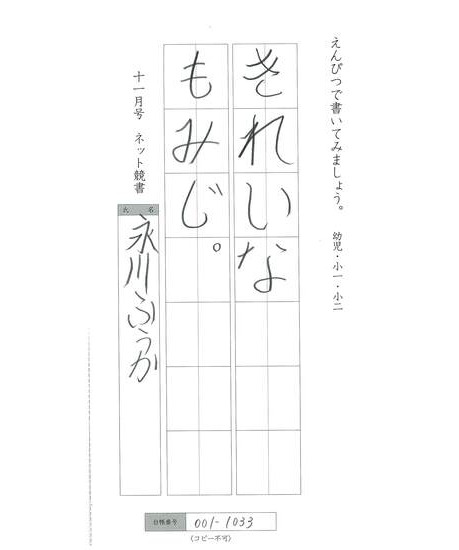 えんぴつで書いてみましょう。 幼児・小一・小二
きれいな
もみじ。
十一月号 ネット競書
氏名
永川ふうか
台帳番号 001-1033
(コピー不可)